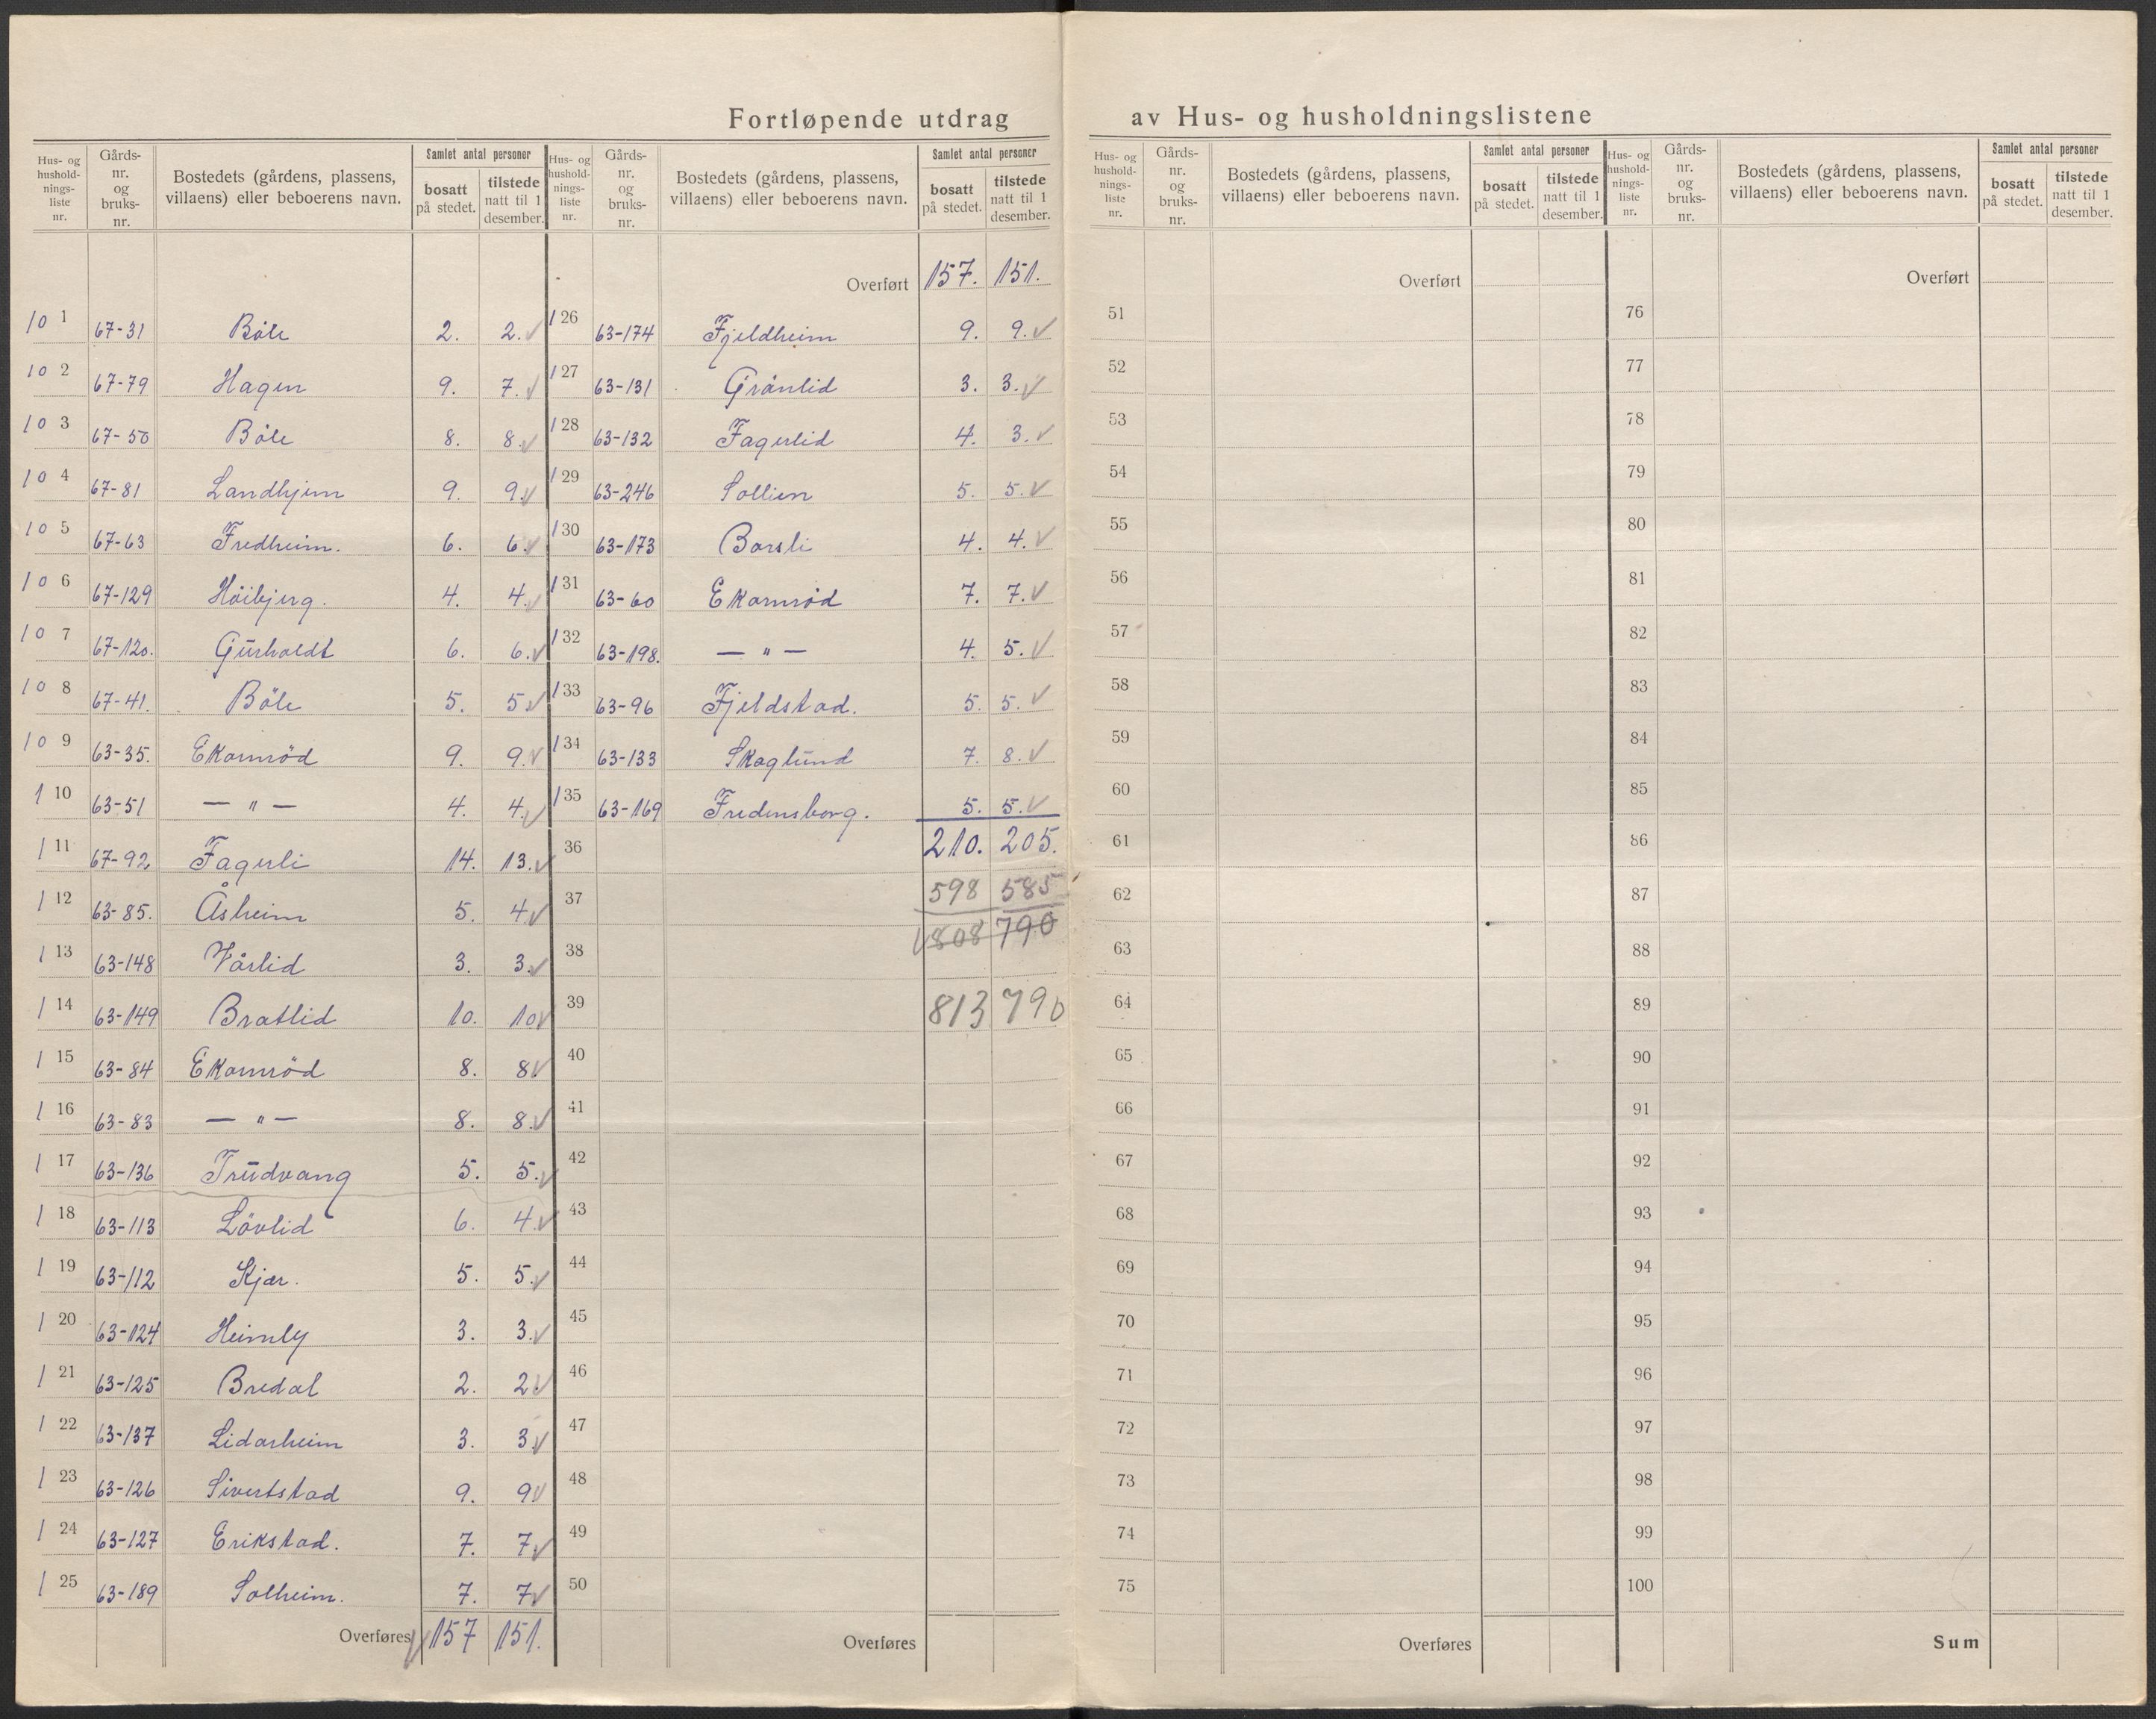 Fortløpende utdrag av Hus- og husholdningslistene
Hus- og hushold-nings-liste nr. | Gårds-nr. og bruks-nr. | Bostedets (gårdens, plassens, villaens) eller beboerens navn. | Samlet antal personer | bosatt på stedet. | tilstede natt til 1 desember.
10 1 67-31 Böle 2. 2. ✓
10 2 67-79 Hagen 9. 7. ✓
10 3 67-50 Böle 8. 8. ✓
10 4 67-81 Landhjem 9. 9. ✓
10 5 67-63 Fredheim. 6. 6. ✓
10 6 67-129 Höibjerg. 4. 4. ✓
10 7 67-120. Gurholdt 6. 6. ✓
10 8 67-41. Böle 5. 5 ✓
10 9 63-35. Ekornröd 9. 9. ✓
1 10 63-51 — " — 4. 4. ✓
1 11 67-92 Fagerli 14. 13. ✓
1 12 63-85. Åsheim 5. 4 ✓
1 13 63-148 Vårlid 3. 3. ✓
1 14 63-149 Bratlid 10. 10 ✓
1 15 63-84 Ekornröd 8. 8 ✓
1 16 63-83 — " — 8. 8. ✓
1 17 63-136 Trudvang 5. 5. ✓
1 18 63-113 Lövlid 6. 4. ✓
1 19 63-112 Kjær. 5. 5. ✓
1 20 63-124 Heimly 3. 3. ✓
1 21 63-125 Bredal 2. 2. ✓
1 22 63-137 Lidarheim 3. 3. ✓
1 23 63-126 Sivertstad 9. 9 ✓
1 24 63-127 Erikstad. 7. 7. ✓
1 25 63-189 Solheim. 7. 7 ✓
Overføres ✓ 157 151.
Hus- og hushold-nings-liste nr. | Gårds-nr. og bruks-nr. | Bostedets (gårdens, plassens, villaens) eller beboerens navn. | Samlet antal personer | bosatt på stedet. | tilstede natt til 1 desember.
Overført 157. 151.
1 26 63-174 Fjeldheim 9. 9. ✓
1 27 63-131 Grönlid 3. 3. ✓
1 28 63-132 Fagerlid 4. 3. ✓
1 29 63-246 Sollien 5. 5. ✓
1 30 63-173 Barsli 4. 4. ✓
1 31 63-60 Ekornröd 7. 7. ✓
1 32 63-198. — " — 4. 5. ✓
1 33 63-96 Fjeldstad. 5. 5. ✓
1 34 63-133 Skoglund 7. 8. ✓
1 35 63-169 Fredensborg. 5. 5. ✓
36 210. 205.
37 598 585
38 ✓ 808 790
39 813 790
40
41
42
43
44
45
46
47
48
49
50
Overføres
Hus- og hushold-nings-liste nr. | Gårds-nr. og bruks-nr. | Bostedets (gårdens, plassens, villaens) eller beboerens navn. | Samlet antal personer | bosatt på stedet. | tilstede natt til 1 desember.
Overført
51
52
53
54
55
56
57
58
59
60
61
62
63
64
65
66
67
68
69
70
71
72
73
74
75
Overføres
Hus- og hushold-nings-liste nr. | Gårds-nr. og bruks-nr. | Bostedets (gårdens, plassens, villaens) eller beboerens navn. | Samlet antal personer | bosatt på stedet. | tilstede natt til 1 desember.
Overført
76
77
78
79
80
81
82
83
84
85
86
87
88
89
90
91
92
93
94
95
96
97
98
99
100
Sum